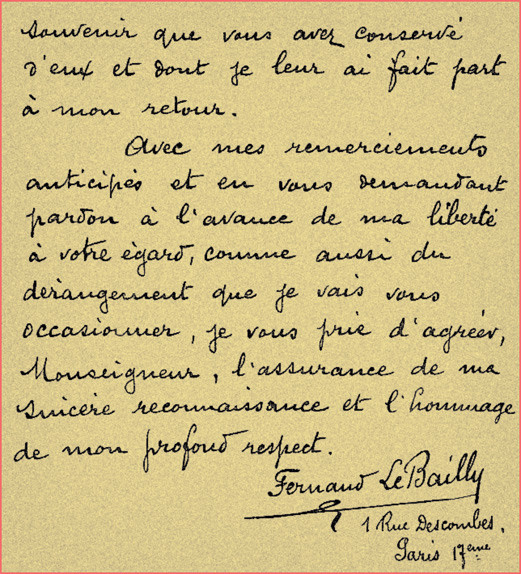 souvenir que vous avez conservé
d'eux et dont je leur ai fait part
à mon retour.
Avec mes remerciements
anticipés et en vous demandant
pardon à l'avance de ma liberté
à votre égard, comme aussi du
dérangement que je vais vous
occasionner, je vous prie d'agréer,
Monseigneur, l'assurance de ma
sincère reconnaissance et l'hommage
de mon profond respect.
Fernand Le Bailly
1 Rue Descombes.
Paris 17eme